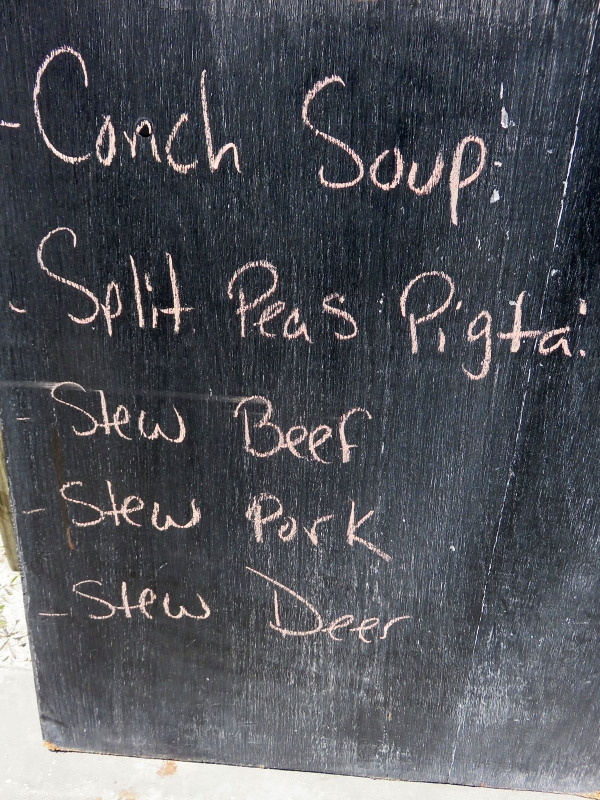 - Conch Soup
- Split Peas Pigtai
- Stew Beef
- Stew Pork
- Stew Deer